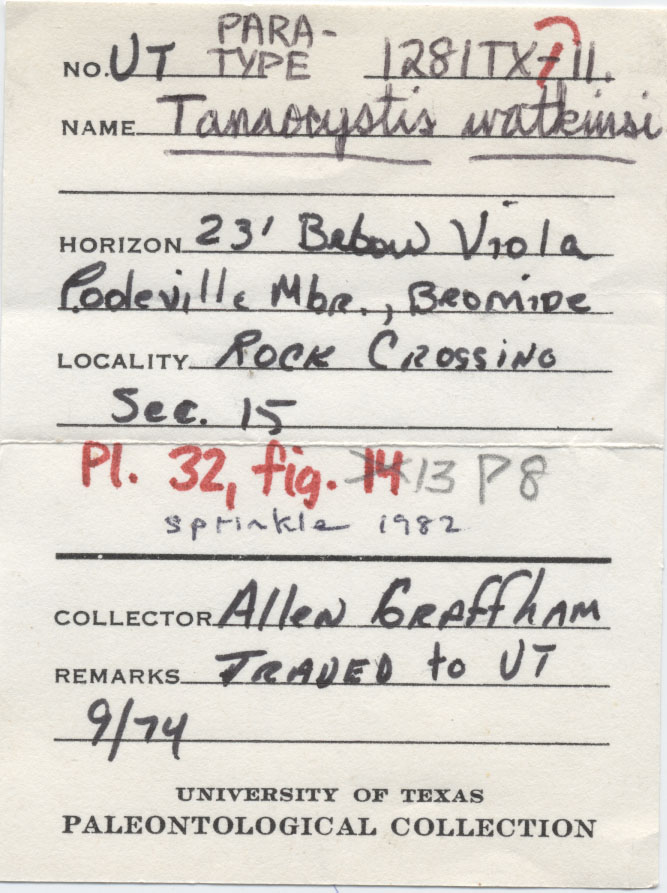 PARA-
NO. UT TYPE 1281TX-11.
NAME Tanaocystis watkinsi
HORIZON 23' Below Viola
Pooleville Mbr., BROMIDE
LOCALITY ROCK CROSSING
Sec. 15
Pl. 32, fig. 14 13 P8
sprinkle 1982
COLLECTOR Allen GRAFFHAM
REMARKS TRADED to UT
9/74
UNIVERSITY OF TEXAS
PALEONTOLOGICAL COLLECTION